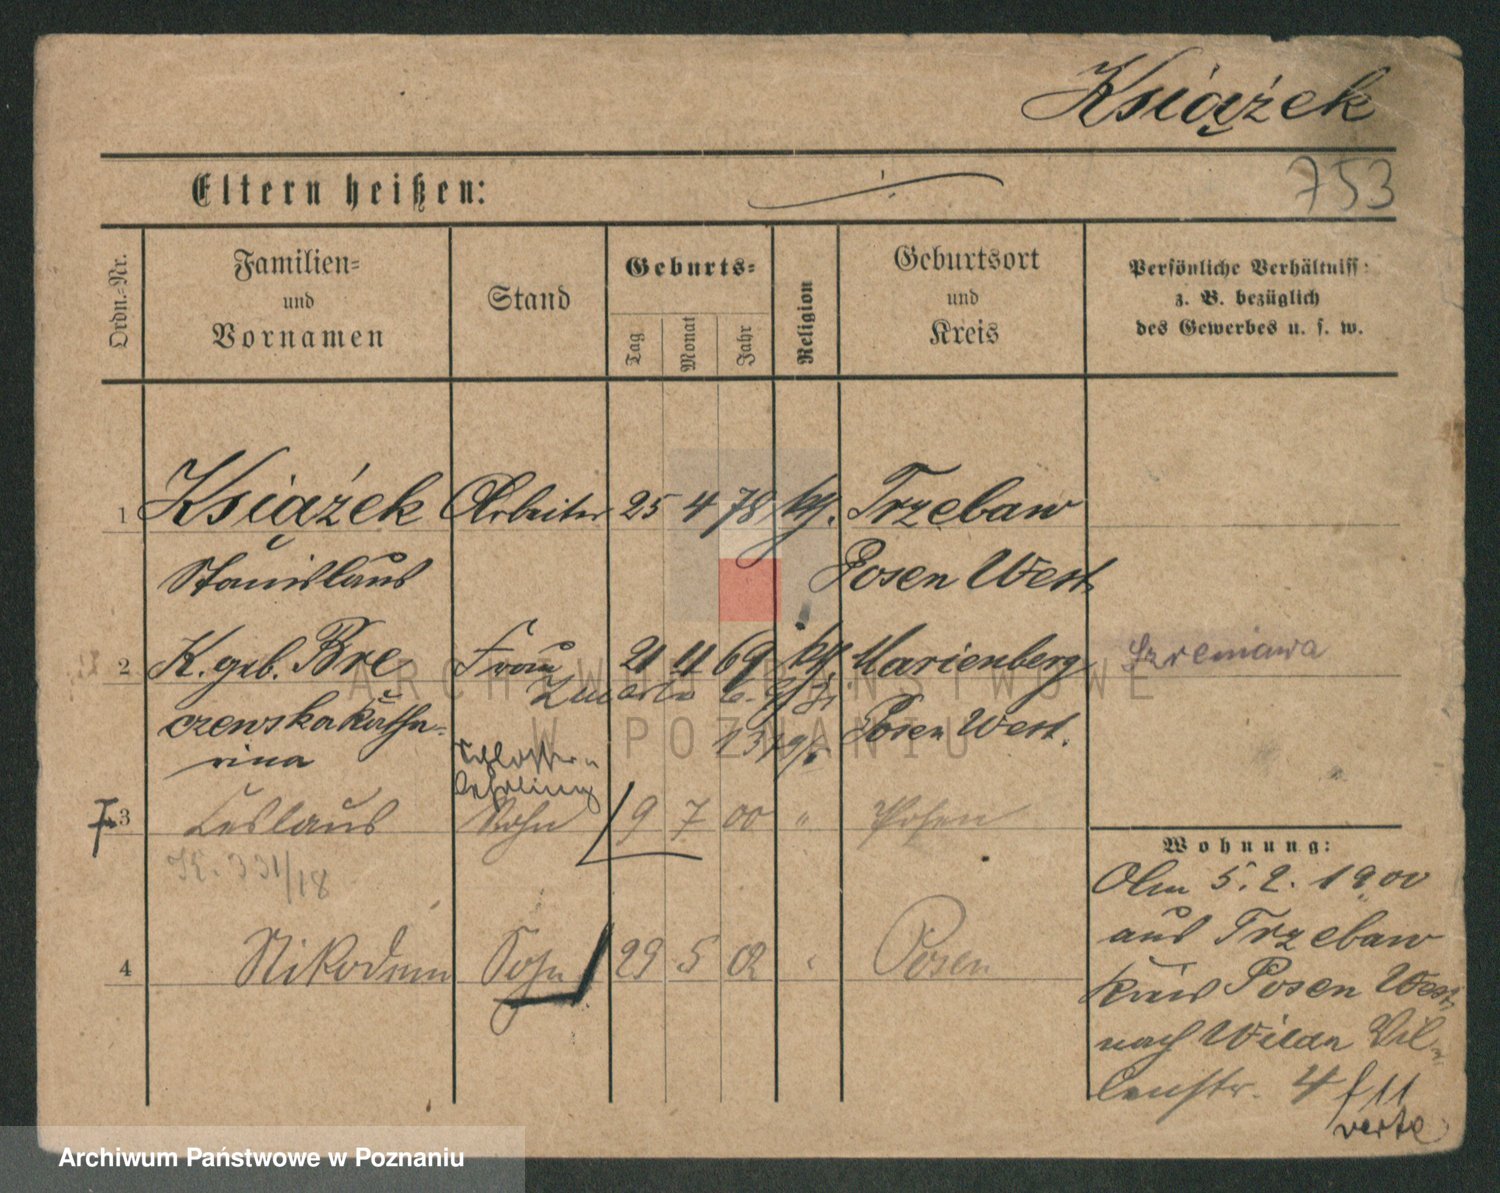 Książek
753
Eltern heißen:
Ordn.-Nr.
Familien- und Vornamen
Stand
Geburts-
Tag
Monat
Jahr
Religion
Geburtsort und Kreis
Persönliche Verhältniss:
z. B. bezüglich
des Gewerbes u. s. w.
1 Książek Arbeiter 25 4 78 kth. Trzebaw
Stanislaus Posen West
2 K. geb. Bre Frau 21 11 69 kth. Marienberg Szreniawa
czewska Katha- Posen West.
rina
Zmarła
Schlosser-
lehrling
3 Ceslaus Sohn 9 7 00 " Posen
K. 331/18
4 Nikodem Sohn 29 5 02 " Posen
Wohnung:
Am 5. 2. 1900
aus Trzebaw
Kreis Posen West
nach Wilda Vil-
lenstr. 4
verte
ARCHIWUM PAŃSTWOWE
W POZNANIU
Archiwum Państwowe w Poznaniu